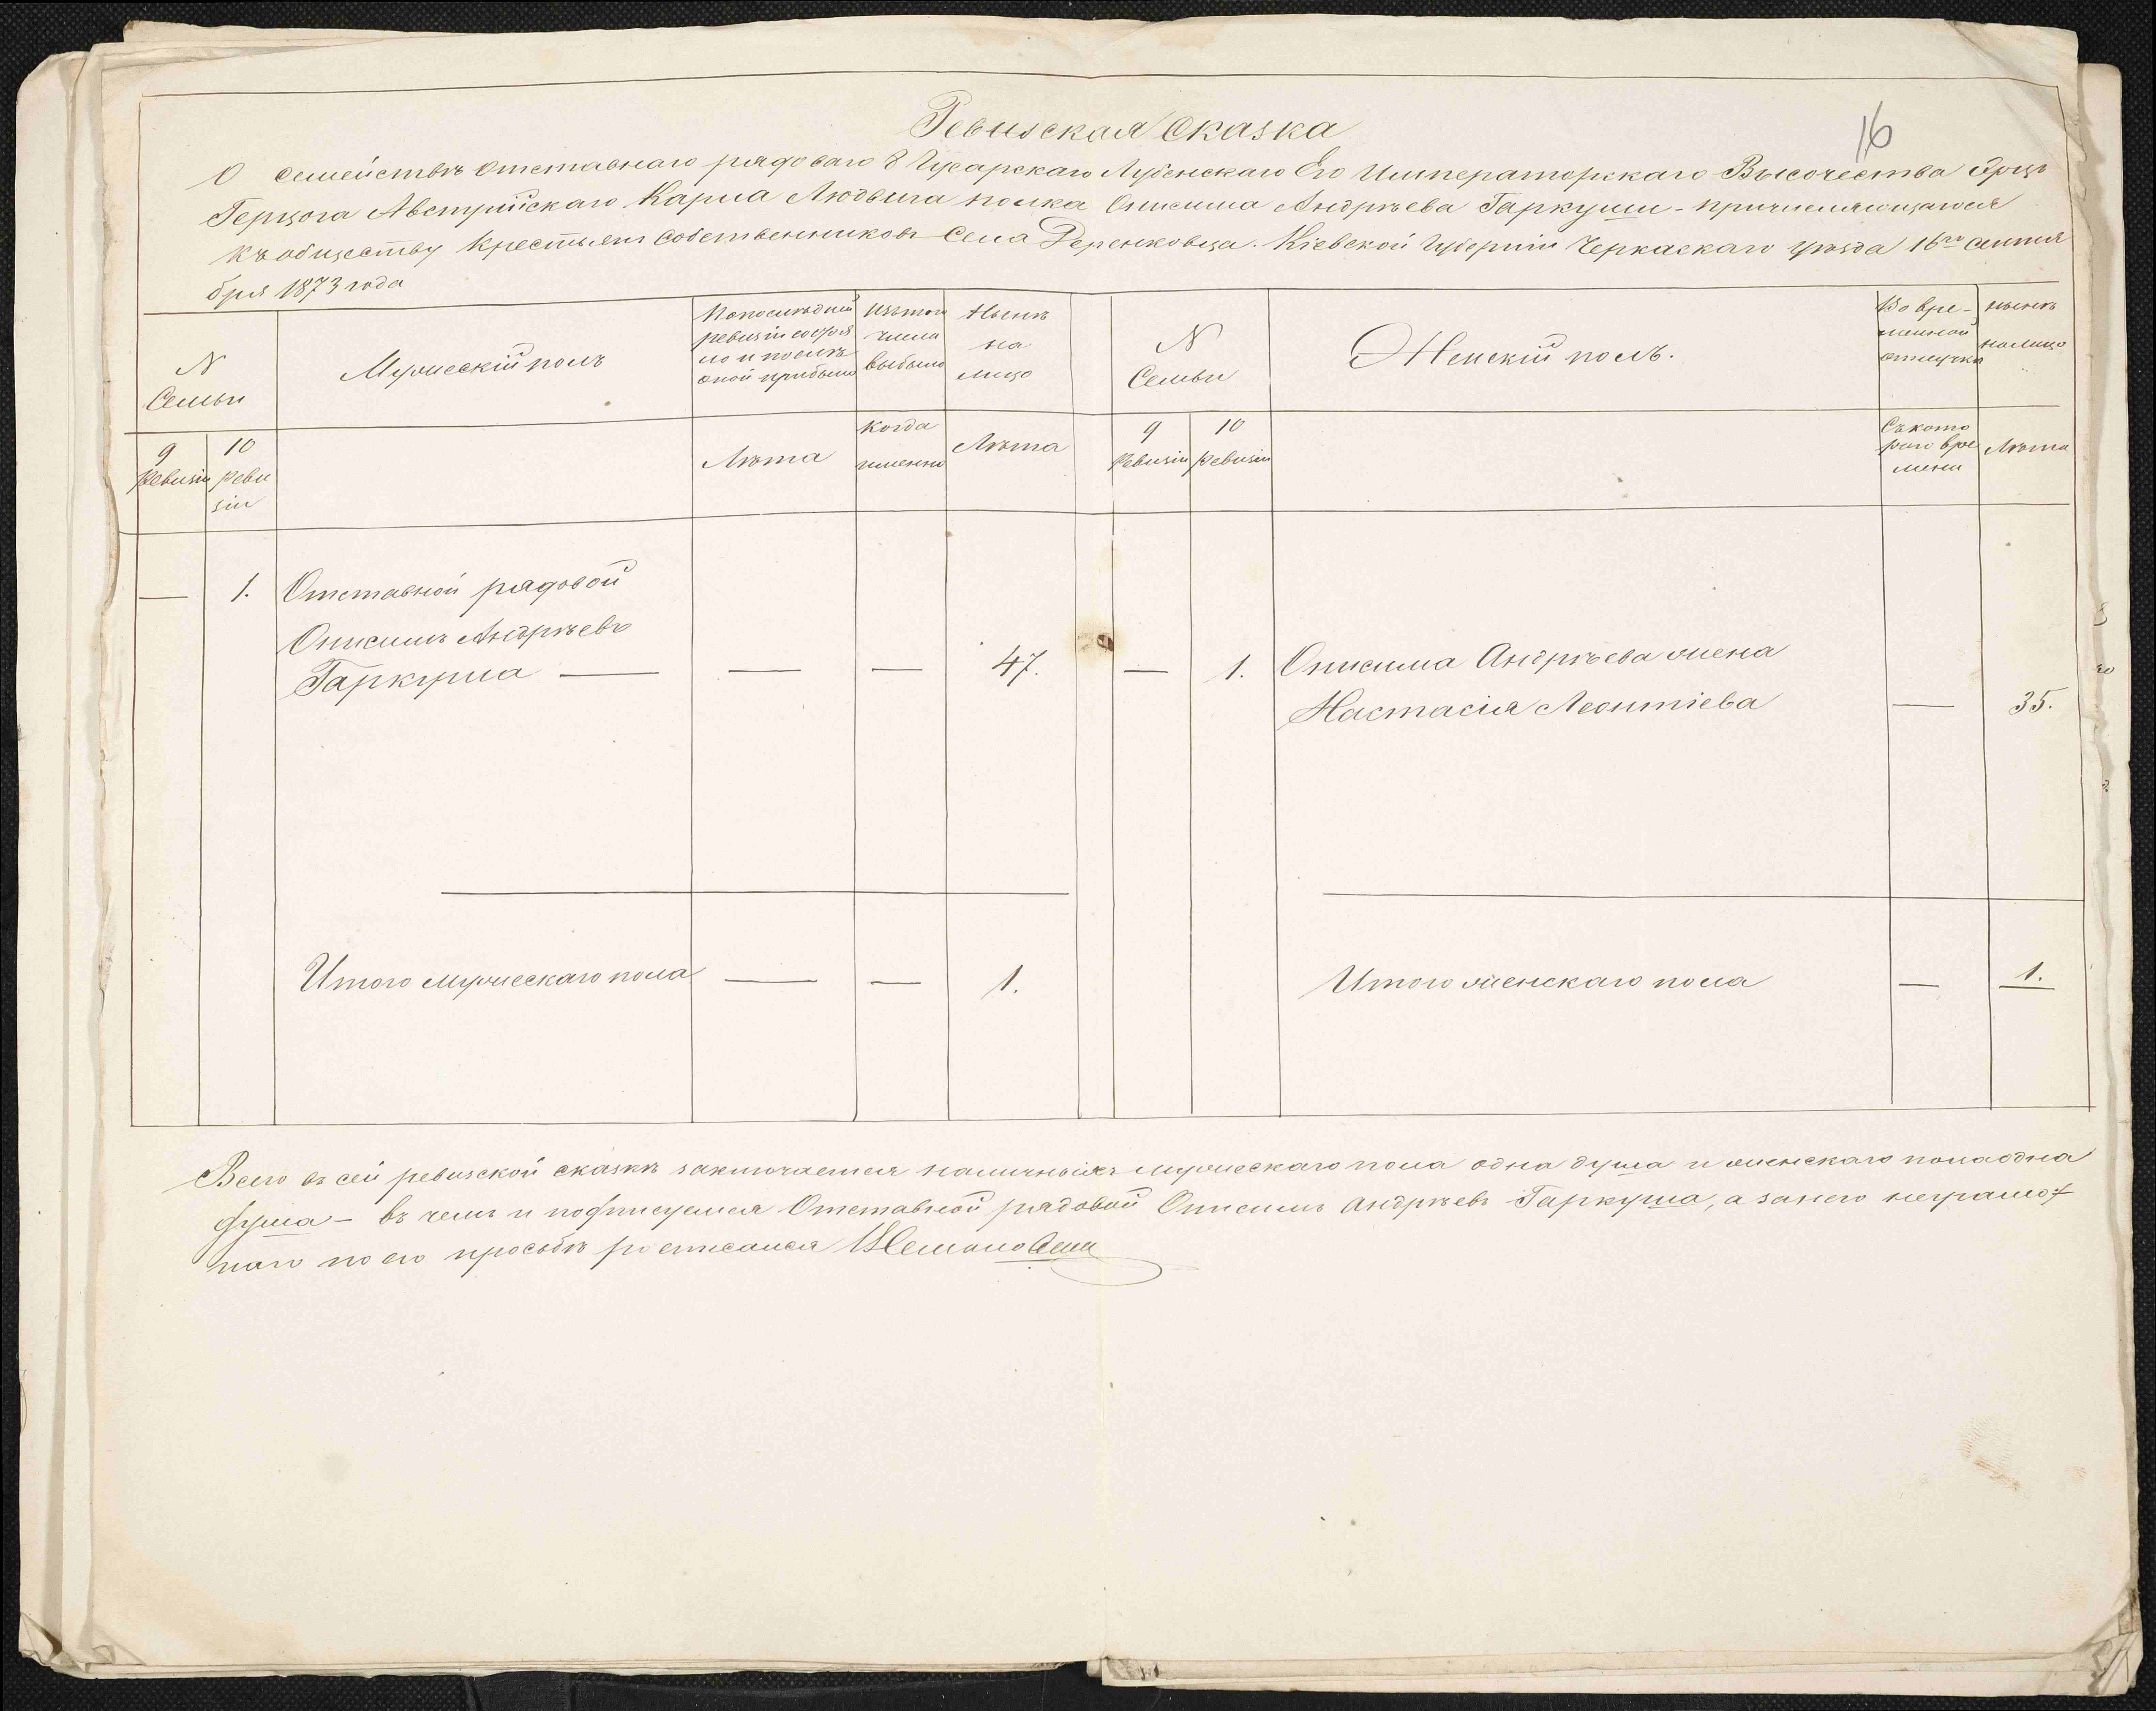 Ревизская Сказка
16
О семействѣ отставнаго рядоваго 8 Гусарскаго Лубенскаго Его Императорскаго Высочества Эрцъ
Герцога Австрійскаго Карла Людвига полка Онисима Андрѣева Гаркуши - причисляющагося
къ обществу Крестьянъ Собственниковъ Села Деренковца. Кіевской Губерніи Черкаскаго уѣзда 16го сентя
бря 1873 года
N
Семьи
Мужескій полъ
По последней
ревизіи состоя
ло и послѣ
оной прибыло
Изъ того
числа
выбыло
Нынѣ
на
лицо
N
Семьи
Женскій полъ.
Во вре-
менной
отлучкѣ
нынѣ
налицо
9
ревизіи
10
реви
зіи
Лѣта
когда
именно
Лѣта
9
Ревизіи
10
ревизіи
Съ кото
раго вре
мени
Лѣта
— 1. Отставной рядовой
Онисимъ Андрѣевъ
Гаркуша — — — 47.
— 1. Онисима Андрѣева жена
Настасія Леонтіева — 35.
Итого мужескаго пола — — 1.
Итого женскаго пола — 1.
Всего въ сей ревизской сказкѣ заключается наличныхъ мужескаго пола одна душа и женскаго пола одна
душа - въ чемъ и подписуемся Отставной рядовой Онисимъ Андрѣевъ Гаркуша, а за него неграмот
наго по его просьбѣ росписался